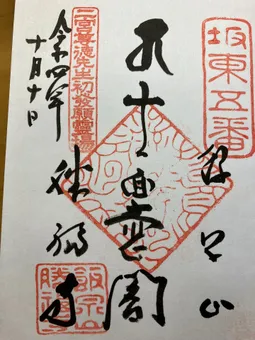 坂東五番
飯泉山
十一面大悲閣
勝福寺
二宮尊徳先生初發願靈場
令和四年
十月十日
飯泉山
勝福寺